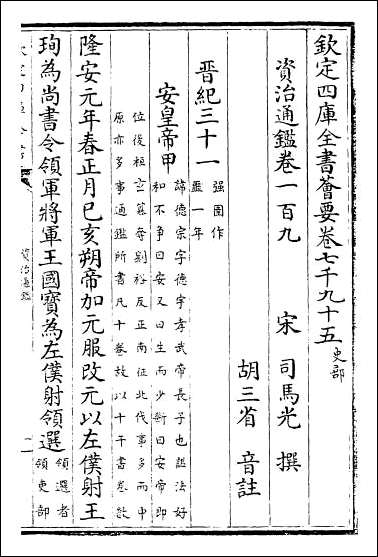 欽定四庫全書薈要卷七千九十五 史部
資治通鑑卷一百九 宋 司馬光 撰
胡三省 音註
晉紀三十一 强圉作
噩一年
安皇帝甲 諱德宗字德宗孝武帝長子也諡法好
和不争曰安又曰生而少斷曰安帝即
位後桓玄簒奪劉裕反正南征北伐事多而中
原亦多事通鑑所書凡十卷故以十干書卷數
隆安元年春正月己亥朔帝加元服改元以左僕射王
珣為尚書令領軍將軍王國寶為左僕射領選 領選者
領吏部
資治通鑑